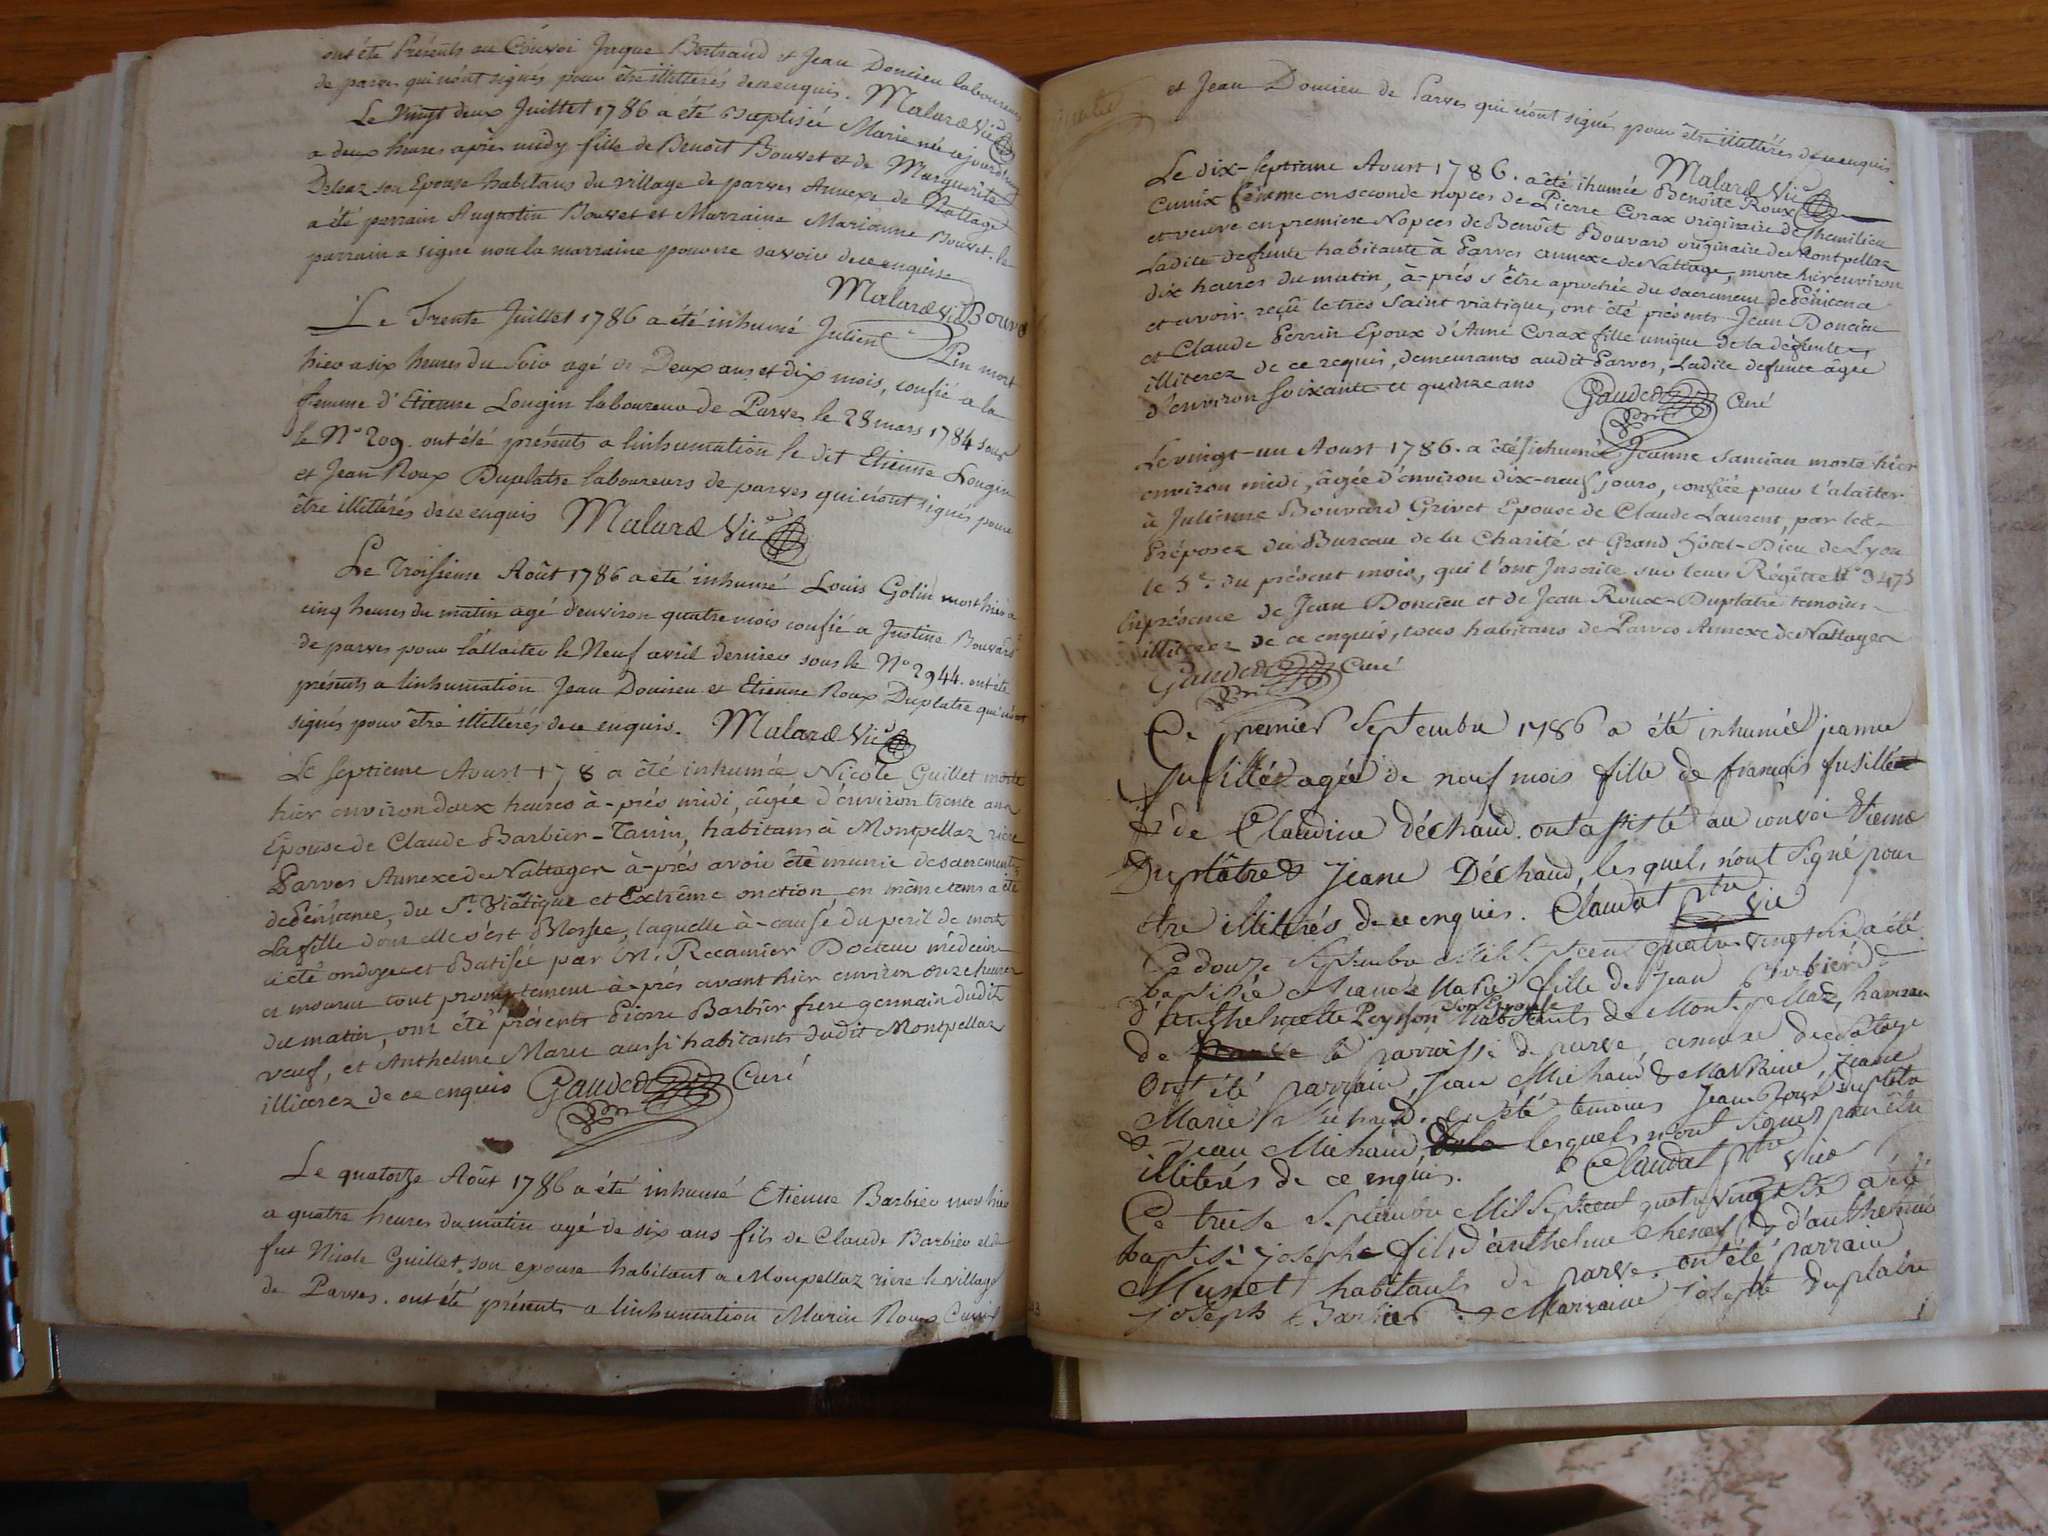 ont été présents au Convoi Jaque Bertrand et Jean Doncieu laboureurs
de parves qui n'ont signés pour être illitterés de ce enquis. Malard Vic
Le Vingt deux Juillet 1786 a été Baptisée Marie née ce jourd'huy
a deux heures après midy fille de Benoit Bouvet et de Marguerite
son Epouse habitans du village de parves Annexe de Nattage
a été parrain Augustin Bouvet et Marraine Marianne Bouvet. le
parrain a signé non la marraine pour ne savoir de ce enquise
Malard Vic Bouvet
Le Trente Juillet 1786 a été inhumé Julien Pin mort
hier a six heures du Soir agé de Deux ans et dix mois, confié a la
femme d'Etienne Lougin laboureur de Parves le 28 mars 1784 sous
le N° 209. ont été présents a l'inhumation le dit Etienne Lougin
et Jean Roux Duplatre laboureurs de parves qui n'ont signés pour
être illitterés de ce enquis Malard Vic
Le Troisieme Août 1786 a été inhumé Louis Golin mort hier a
cinq heures du matin agé d'environ quatre mois confié a Justine Bouvard
de parves pour l'allaiter le Neuf avril dernier sous le N° 2944. ont été
présents a l'inhumation Jean Doncieu et Etienne Roux Duplatre qui n'ont
signés pour être illitterés de ce enquis. Malard Vic
Le septieme Aoust 178 a été inhumée Nicole Guillet morte
hier environ deux heures à-prés midi, âgée d'environ trente ans
Epouse de Claude Barbier-Tanin, habitans à Montpellaz riere
Parves Annexe de Nattages à-prés avoir été munie des sacrements
de Pénitence, du St. Viatique et Extrême onction, en même tems a été
La fille dont elle s'est Blessée, laquelle à-cause du peril de mort
a été ondoyée et Batisée par M. Recamier Docteur médecin
et mourut tout promptement à-prés avant hier environ onze heures
du matin, ont été présents Pierre Barbier frere germain dudit
veuf, et Anthelme Maret aussi habitants dudit Montpellaz
illiterez de ce enquis Gaudet Curé
Le quatorze Août 1786 a été inhumé Etienne Barbier mort hier
a quatre heures du matin agé de six ans fils de Claude Barbier et de
fut Nicole Guillet son epouse habitant a Monpellaz riere le village
de Parves. ont été présents a l'inhumation Marin Roux Curnix
et Jean Doncieu de Parves qui n'ont signés pour être illitterés de ce enquis.
Malard Vic
Le dix-septieme Aoust 1786. a été ihumée Benoîte Roux
Cunix femme en seconde nopces de Pierre Corax originaire de Chemilieu
et veuve en premiere Nopces de Benoît Bouvard originaire de Montpellaz
Ladite defunte habitante à Parves annexe de Nattage, morte hier environ
dix heures du matin, à-prés s'être aprochée du sacrement de Pénitence
et avoir reçû le tres saint viatique, ont été présents Jean Doncieu
et Claude Perrin Epoux d'Anne Corax fille unique de la défunte,
illiterez de ce requis, demeurants audit Parves, Ladite defunte âgée
d'environ soixante et quinze ans Gaudet Curé
Le vingt-un Aoust 1786. a été Inhumée Jeanne Sancian morte hier
environ midi, âgée d'environ dix-neuf jours, confiée pour l'alaiter
à Julienne Bouvard Grivet Epouse de Claude Laurent, par les
Préposez du Bureau de la Charité et Grand Hôtel-Dieu de Lyon
le 5e. du présent mois, qui l'ont Inscrite sur leurs Régître N° 3475
En présence de Jean Doncieu et de Jean Roux-Duplatre temoins
illiterez de ce enquis, tous habitans de Parves Annexe de Nattages
Gaudet Curé
Ce premier Septembre 1786 a été inhumée jeanne
fusillet agée de neuf mois fille de francois fusillet
& de Claudine Déchaud. ont assisté au convoi Etienne
Duplâtre & Jeane Déchaud, lesquels n'ont signé pour
etre illitérés de ce enquis. Claudat ptre Vic
Ce douze Septembre Mil Sept cent quatre vingt six a été
baptisée Marie fille de Jean Barbier &
d'anthelmette Peysson son Epouse habitants de Montpellaz, hameau
de la parroisse de parve annexe de natage
Ont été parrain Jean Michaud & Marraine Jeane
Marie Michaud. ont été temoins Jean Roux Duplatre
& Jean Michaud lesquels n'ont signés pour être
illiterés de ce enquis. Claudat ptre Vice
Ce treise Septembre Mil Sept cent quatre vingt six a été
baptisé josephe fils d'anthelme Chenet & d'anthelmie
Munet habitants de parve. ont été parrain
joseph Barbier & Marraine josephte Duplatre